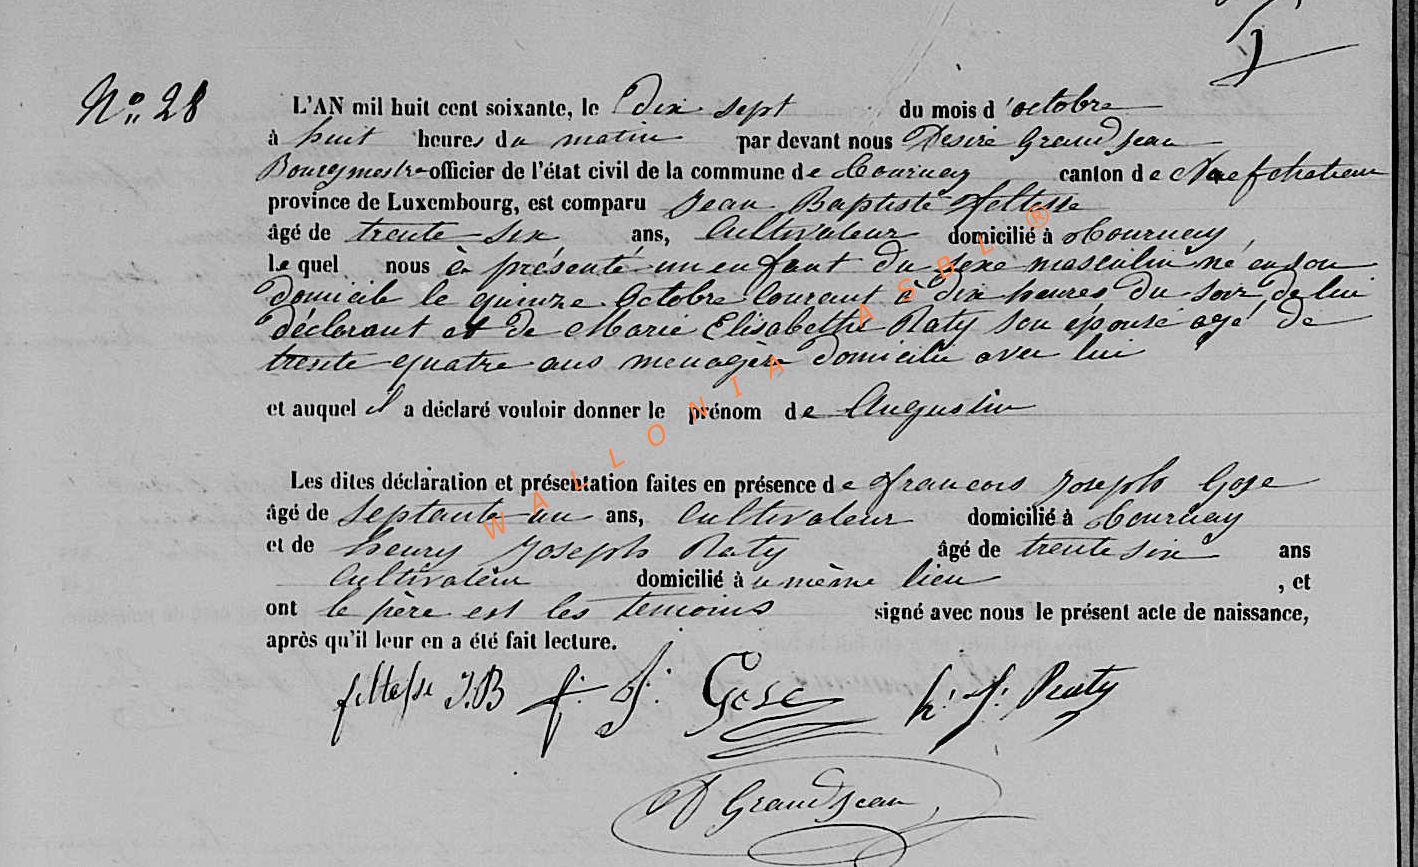 No 28
L'AN mil huit cent soixante, le dix sept du mois d'octobre
à huit heures du matin par devant nous Desiré Grandjean
Bourgmestre officier de l'état civil de la commune de Tournay canton de Neufchateau
province de Luxembourg, est comparu Jean Baptiste feltesse
âgé de trente-six ans, Cultivateur domicilié à Tournay,
le quel nous à présenté un enfant du sexe masculin né en son
domicile le quinze Octobre Courant à dix heures du soir, de lui
déclarant et de Marie Elisabethe Raty son épouse agé de
trente quatre ans menagère domicilié avec lui
et auquel il a déclaré vouloir donner le prénom de Augustin
Les dites déclaration et présentation faites en présence de francois Joseph Gose
âgé de septante-un ans, Cultivateur domicilié à Tournay
et de henry Joseph Raty âgé de trente six ans
Cultivateur domicilié à u même lieu , et
ont le père est les temoins signé avec nous le présent acte de naissance,
après qu'il leur en a été fait lecture.
feltesse J.B f. J. Gose h. J. Raty
D Grandjean
WALLONIA ASBL ®